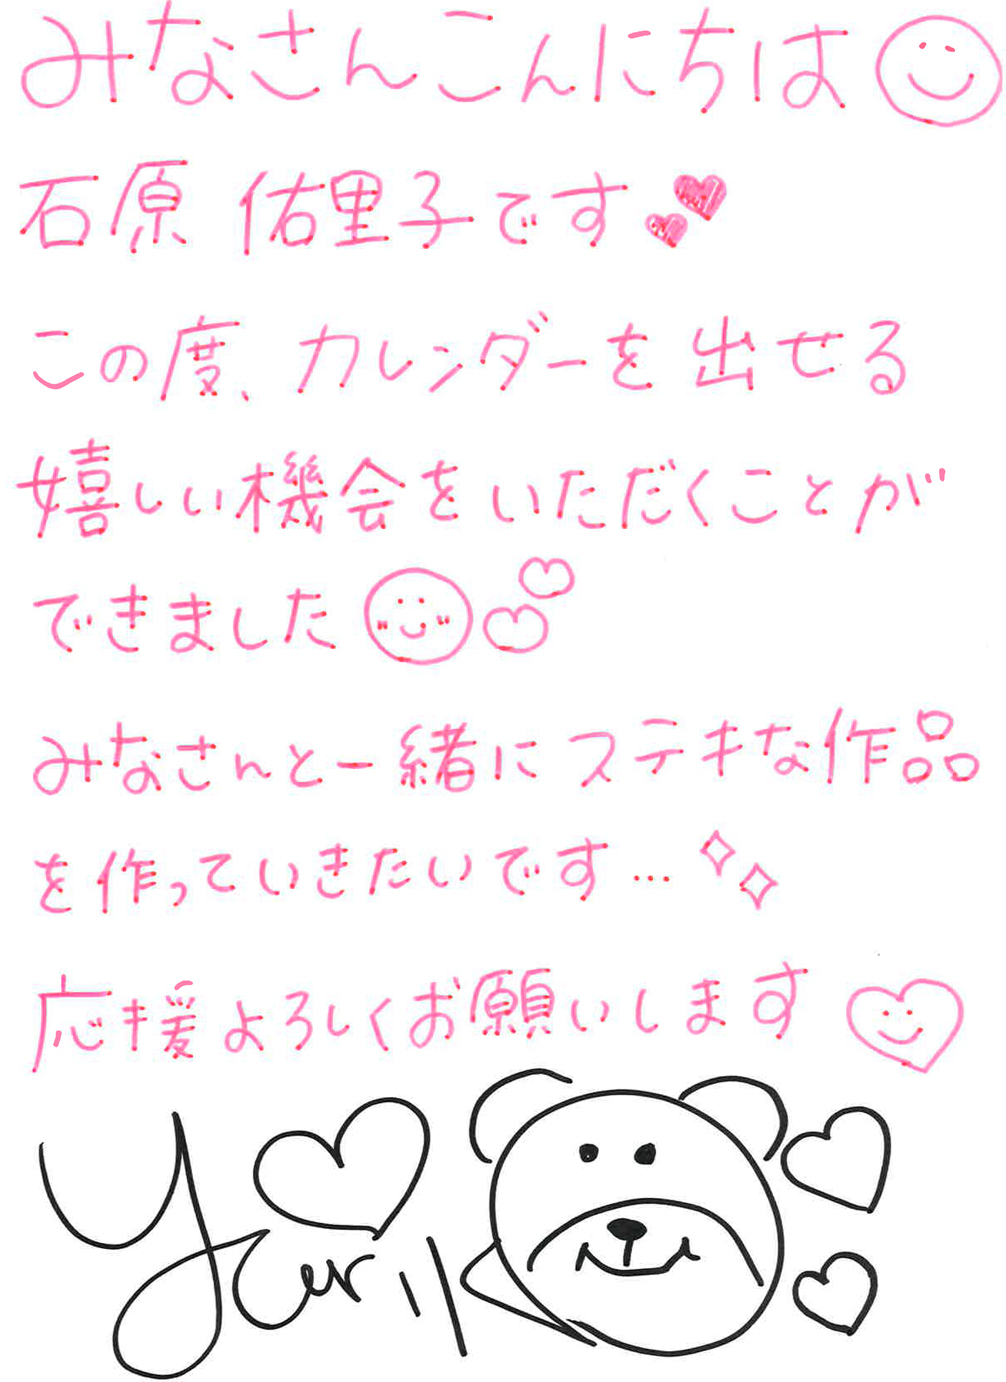 みなさんこんにちは
石原 佑里子です
この度、カレンダーを出せる
嬉しい機会をいただくことが
できました
みなさんと一緒にステキな作品
を作っていきたいです…
応援よろしくお願いします
Yurik